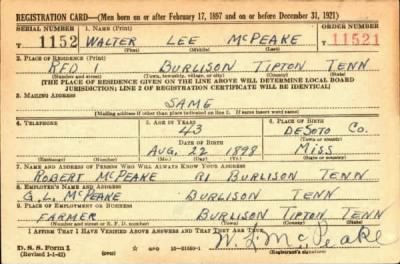 REGISTRATION CARD—(Men born on or after February 17, 1897 and on or before December 31, 1921)
SERIAL NUMBER 1. NAME (Print) ORDER NUMBER
T 1152 WALTER LEE McPEAKE T 11521
(First) (Middle) (Last)
2. PLACE OF RESIDENCE (Print)
RFD 1 BURLISON TIPTON TENN
(Number and street) (Town, township, village, or city) (County) (State)
[THE PLACE OF RESIDENCE GIVEN ON THE LINE ABOVE WILL DETERMINE LOCAL BOARD
JURISDICTION; LINE 2 OF REGISTRATION CERTIFICATE WILL BE IDENTICAL]
3. MAILING ADDRESS
SAME
[Mailing address if other than place indicated on line 2. If same insert word same]
4. TELEPHONE 5. AGE IN YEARS 6. PLACE OF BIRTH
43 DESOTO CO.
DATE OF BIRTH (Town or county)
AUG. 22 1898 MISS
(Exchange) (Number) (Mo.) (Day) (Yr.) (State or country)
7. NAME AND ADDRESS OF PERSON WHO WILL ALWAYS KNOW YOUR ADDRESS
ROBERT McPEAKE R1 BURLISON TENN
8. EMPLOYER'S NAME AND ADDRESS
G. L. McPEAKE BURLISON TENN
9. PLACE OF EMPLOYMENT OR BUSINESS
FARMER BURLISON TIPTON TENN
(Number and street or R. F. D. number) (Town) (County) (State)
I AFFIRM THAT I HAVE VERIFIED ABOVE ANSWERS AND THAT THEY ARE TRUE.
D. S. S. Form 1
(Revised 1-1-42) (over) W. L. McPeake
(Registrant's signature)